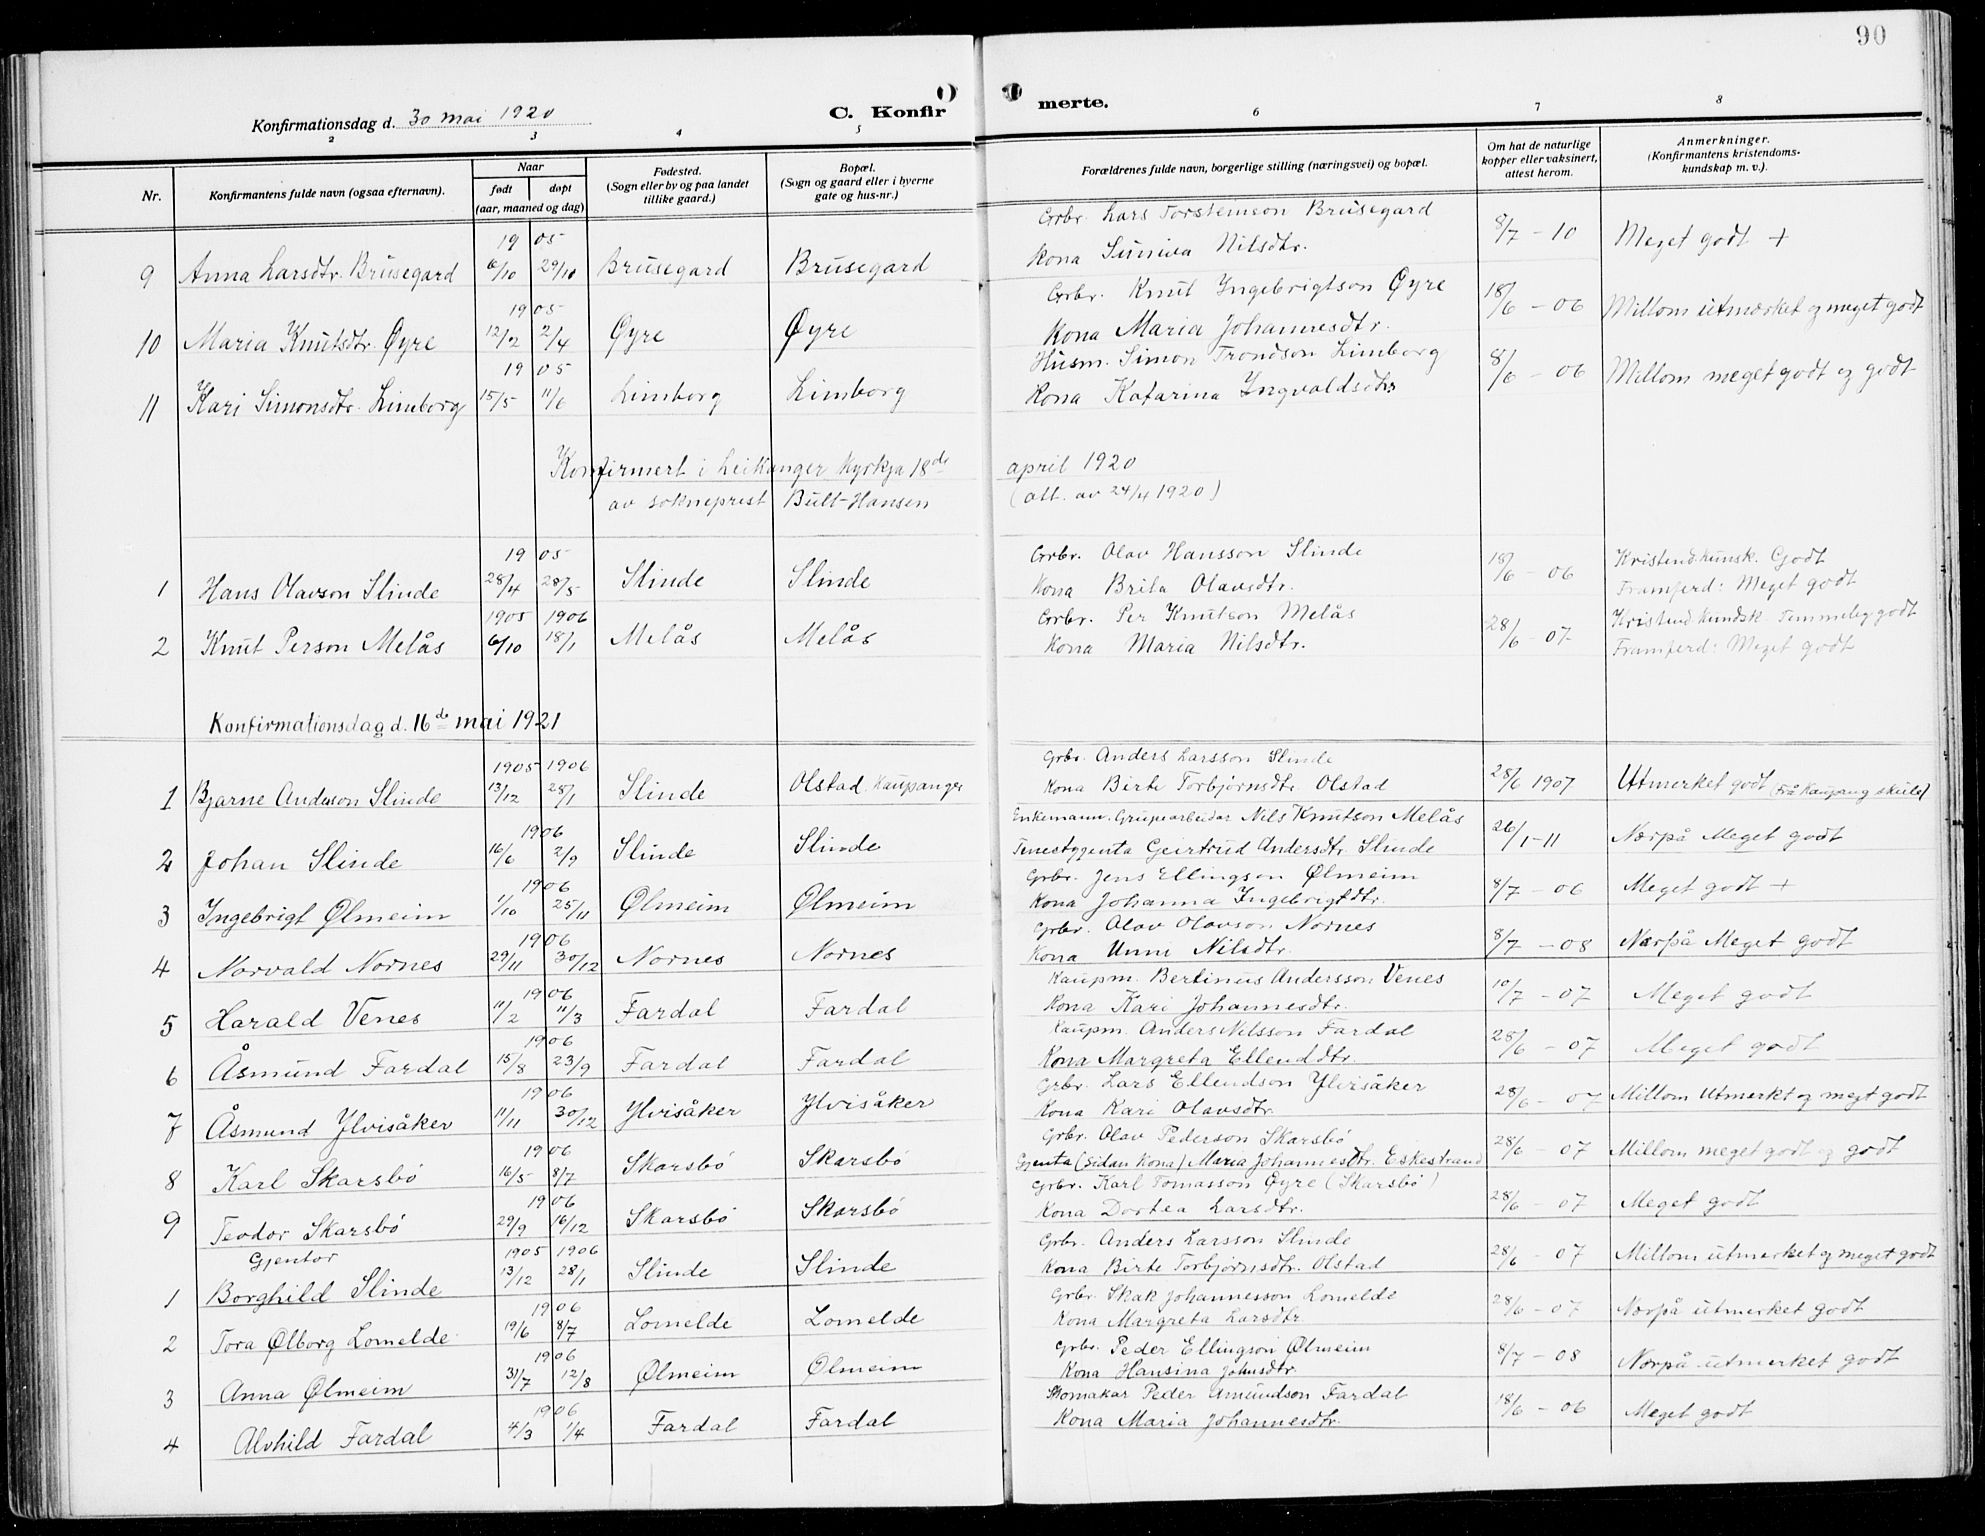 90
Konfirmationsdag d. 30 mai 1920 C. Konfir merte.
2 3 4 5 6 7 8
Nr. Konfirmantens fulde navn (ogsaa efternavn). Naar født døpt (aar, maaned og dag) Fødested. (Sogn eller by og paa landet tillike gaard.) Bopæl. (Sogn og gaard eller i byerne gate og hus-nr.) Forældrenes fulde navn, borgerlige stilling (næringsvei) og bopæl. Om hat de naturlige kopper eller vaksinert, attest herom. Anmerkninger. (Konfirmantens kristendoms-kundskap m. v.).
19 05 Grbr. Lars Torsteinson Brusegard
9 Anna Larsdtr. Brusegard 6/10 29/10 Brusegard Brusegard Kona Suniva Nilsdtr. 8/7 - 10 Meget godt +
19 05 Grbr. Knut Ingebrigtson Øyre
10 Maria Knutsdtr. Øyre 12/2 2/4 Øyre Øyre Kona Maria Johannesdtr. 18/6 - 06 Millom utmerket og meget godt
19 05 Husm. Simon Trondson Limborg
11 Kari Simonsdtr. Limborg 15/5 11/6 Limborg Limborg Kona Katarina Ingvaldsdtr 8/6 - 06 Millom meget godt og godt
Konfirmert i Leikanger kyrkja 18de april 1920
av sokneprest Bult-Hansen (att. av 24/4 1920)
19 05 Grbr. Olav Hansson Slinde Kristend.kunsk. Godt
1 Hans Olavson Slinde 28/4 28/5 Slinde Slinde Kona Brita Olavsdtr. 18/6 - 06 Framferd: Meget godt
1905 1906 Grbr. Per Knutson Melås Kristend.kundsk. Temmeleg godt
2 Knut Person Melås 6/10 18/1 Melås Melås Kona Maria Nilsdtr. 28/6 - 07 Framferd: Meget godt
Konfirmationsdag d. 16de mai 1921
1905 1906 Grbr. Anders Larsson Slinde
1 Bjarne Anderson Slinde 13/12 28/1 Slinde Olstad Kaupanger Kona Birte Torbjørnsdtr. Olstad 28/6 1907 Utmerket godt (frå Kaupang skule)
1906 Enkemann. Gruvearbeidar Nils Knutson Melås
2 Johan Slinde 16/6 2/9 Slinde Slinde Tenestgjenta Geirtrud Andersdtr. Slinde 26/1-11 Nærpå Meget godt
1906 Grbr. Jens Ellingson Ølmeim
3 Ingebrigt Ølmeim 1/10 25/11 Ølmeim Ølmeim Kona Johanna Ingebrigtdtr. 8/7 - 06 Meget godt +
1906 Grbr. Olav Olavson Nornes
4 Norvald Nornes 29/11 30/12 Nornes Nornes Kona Unni Nilsdtr. 8/7 - 08 Nærpå Meget godt
1906 Kaupm. Bertinus Andersson Venes
5 Harald Venes 11/2 11/3 Fardal Fardal Kona Kari Johannesdtr. 10/7 - 07 Meget godt
1906 Kaupm. Anders Nilsson Fardal
6 Åsmund Fardal 15/8 23/9 Fardal Fardal Kona Margreta Ellenddtr. 28/6 - 07 Meget godt
1906 Grbr. Lars Ellendson Ylvisåker
7 Åsmund Ylvisåker 11/11 30/12 Ylvisåker Ylvisåker Kona Kari Olavsdtr. 28/6 - 07 Millom Utmerkt og megt godt
1906 Grbr. Olav Pederson Skarsbø
8 Karl Skarsbø 16/5 8/7 Skarsbø Skarsbø Gjenta (sidan kona) Maria Johannesdtr. Eskestrand 28/6 - 07 Millom meget godt og godt
1906 Grbr. Karl Tomasson Øyre (Skarsbø)
9 Teodor Skarsbø 29/9 16/12 Skarsbø Skarsbø Kona Dortea Larsdtr. 28/6 - 07 Meget godt
Gjentor 1905 1906 Grbr. Anders Larsson Slinde
1 Borghild Slinde 13/12 28/1 Slinde Slinde Kona Birte Torbjørnsdtr. Olstad 28/6 - 07 Millom utmerket og meget godt
1906 Grbr. Skak Johannesson Lomelde
2 Tora Ølborg Lomelde 19/6 8/7 Lomelde Lomelde Kona Margreta Larsdtr. 28/6 - 07 Nærpå utmerket godt
1906 Grbr. Peder Ellingson Ølmeim
3 Anna Ølmeim 31/7 12/8 Ølmeim Ølmeim Kona Hansina Johnsdtr. 8/7 - 08 Nærpå utmerket godt
1906 Skomakar Peder Amundson Fardal
4 Alvhild Fardal 4/3 1/4 Fardal Fardal Kona Maria Johannesdtr. 18/6 - 06 Meget godt